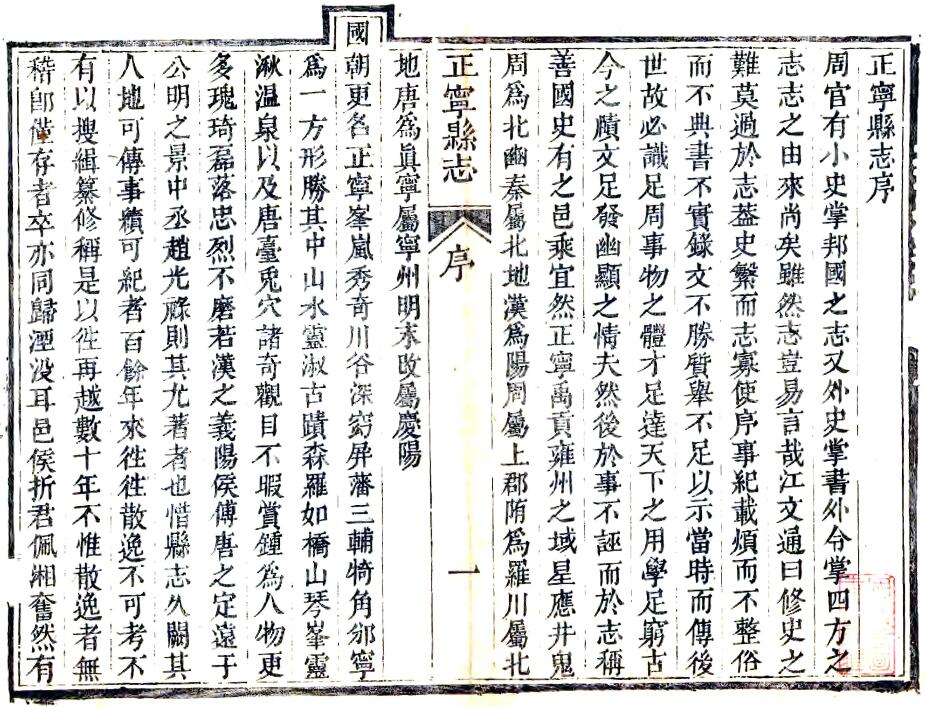 正寧縣志序
周官有小史掌邦國之志又外史掌書外令掌四方之
志志之由來尚矣雖然志豈易言哉江文通曰修史之
難莫過於志葢史繫而志寡使序事紀載煩而不整俗
而不典書不實錄文不勝質舉不足以示當時而傳後
世故必識足周事物之體才足達天下之用學足窮古
今之賾文足發幽顯之情夫然後於事不誣而於志稱
善國史有之邑乘宜然正寧禹貢雍州之域星應井鬼
周為北豳秦屬北地漢為陽周屬上郡隋為羅川屬北
正寧縣志 序 一
地唐為真寧屬寧州明末改屬慶陽
國
朝更名正寧峯嵐秀奇川谷深窈屏藩三輔犄角邠寧
為一方形勝其中山水靈淑古蹟森羅如橋山琴峯靈
湫溫泉以及唐臺兎穴諸奇觀目不暇賞鍾為人物更
多瑰琦磊落忠烈不磨若漢之義陽侯傅唐之定遠于
公明之景中丞趙光祿則其尤著者也惜縣志久闕其
人地可傳事蹟可紀者百餘年來徃徃散逸不可考不
有以搜緝纂修稱是以徃再越數十年不惟散逸者無
稽即僅存者卒亦同歸湮沒耳邑侯折君佩湘奮然有